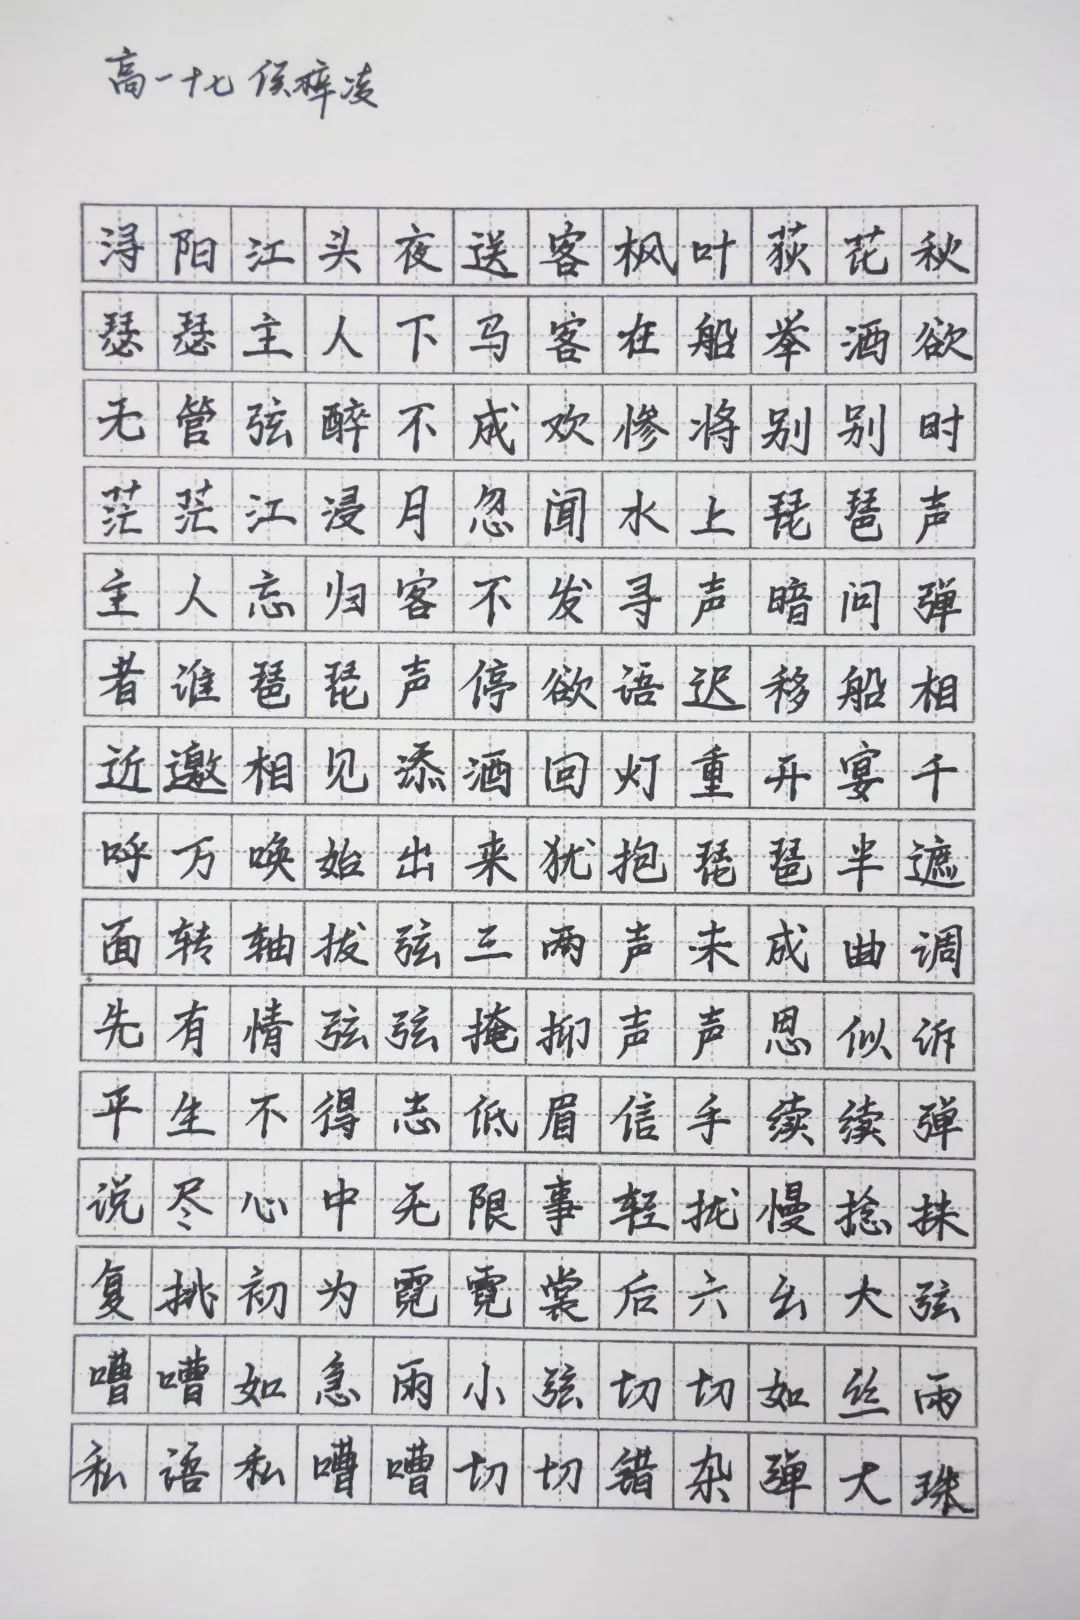 高一十七 侯梓凌
浔阳江头夜送客枫叶荻花秋
瑟瑟主人下马客在船举酒欲
无管弦醉不成欢惨将别别时
茫茫江浸月忽闻水上琵琶声
主人忘归客不发寻声暗问弹
者谁琵琵声停欲语迟移船相
近邀相见添酒回灯重开宴千
呼万唤始出来犹抱琵琶半遮
面转轴拔弦三两声未成曲调
先有情弦弦掩抑声声思似诉
平生不得志低眉信手续续弹
说尽心中无限事轻拢慢捻抹
复挑初为霓霓裳后六幺大弦
嘈嘈如急雨小弦切切如丝雨
私语私嘈嘈切切错杂弹大珠